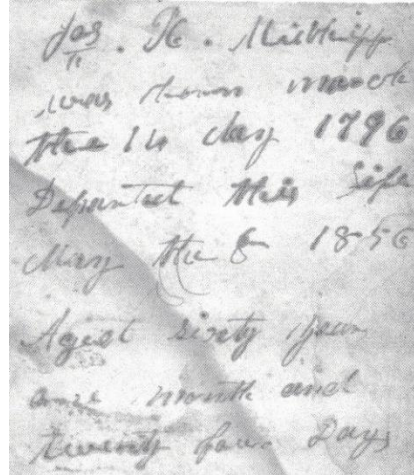 Jos. H. Millhipp
was born march
the 14 day 1796
Departed this life
May the 8 1856
Aged sixty years
one month and
twenty four Days